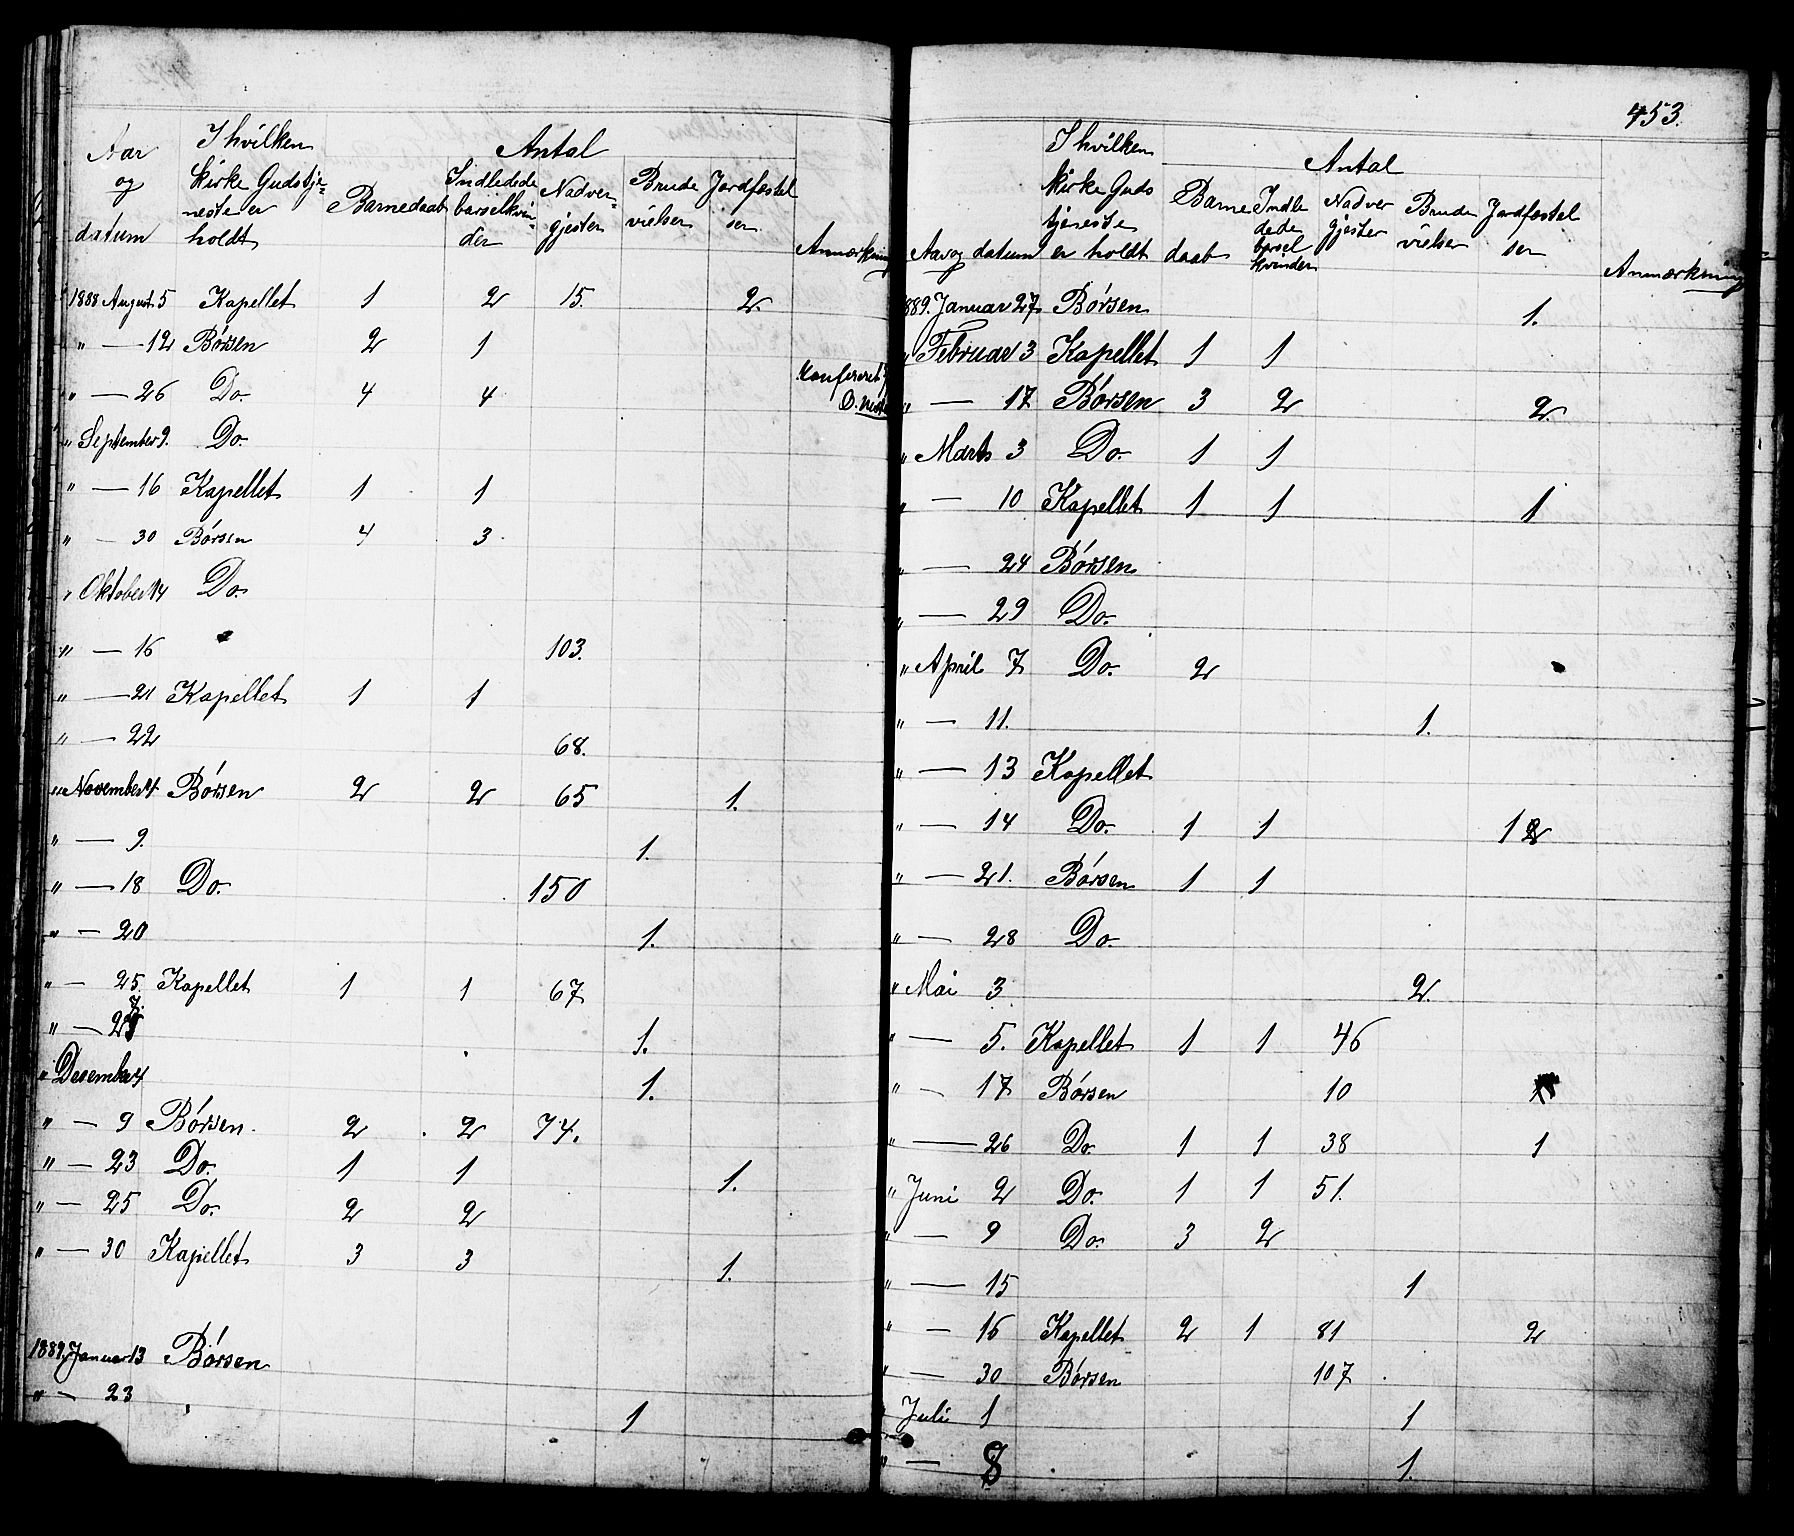 Aar og datum | I hvilken Kirke Gudstje= neste er holdt | Antal | Anmærkning
Barnedaab | Indledede barselkvin= der | Nadver= gjester | Brude vielser | Jordfæstel ser
1888 August 5 Kapellet 1 2 15. 2.
" — 12 Børsen 2 1
" — 26 Do. 4 4
" September 9. Do.
" — 16 Kapellet 1 1
" — 30 Børsen 4 3
" Oktober 14 Do.
" — 16 103.
" — 21 Kapellet 1 1
" — 22 68.
" November 4 Børsen 2 2 65 1.
" — 9. 1.
" — 18 Do. 150
" — 20 1.
" — 25. Kapellet 1 1 67
" — 27 1.
" Desember 4 1.
" — 9 Børsen 2 2 74.
" — 23 Do. 1 1 1.
" — 25 Do. 2 2
" — 30 Kapellet 3 3 1.
1889. Januar 13 Børsen
" — 23 1
453.
Aar og datum | I hvilken Kirke Guds tjeneste er holdt | Antal | Anmærkning
Barne daab | Indle dede barsel kvinder | Nadver gjester | Brude vielser | Jordfæstel ser
889. Januar 27 Børsen 1.
" Februar 3 Kapellet 1 1
" — 17 Børsen 3 2 2.
" Marts 3 Do. 1 1
" — 10 Kapellet 1 1 1
" — 24 Børsen
" — 29 Do.
" April 7 Do. 2
" — 11. 1.
" — 13 Kapellet
" — 14 Do. 1 1 1 2
" — 21. Børsen 1 1
" — 28 Do.
" Mai 3 2.
" — 5. Kapellet 1 1 46
" — 17 Børsen 10
" — 26 Do. 1 1 38 1
" Juni 2 Do. 1 1 51.
" — 9 Do. 3 2
" — 15 1
" — 16 Kapellet 2 1 81 2
" — 30 Børsen 107
" Juli 1 1
" — 8 1.